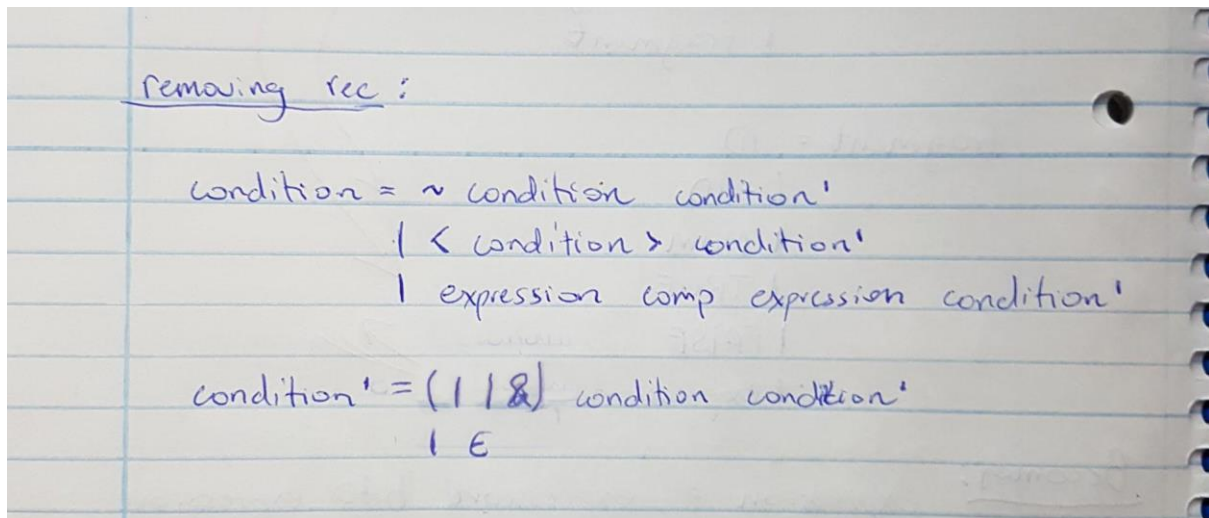 removing rec :
condition = ~ condition condition'
| < condition > condition'
| expression comp expression condition'
condition' = (| | &) condition condition'
| ε